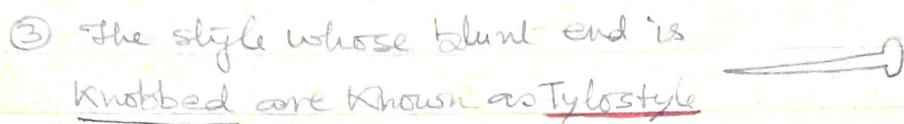 ③ The style whose blunt end is
Knobbed are Known as Tylostyle